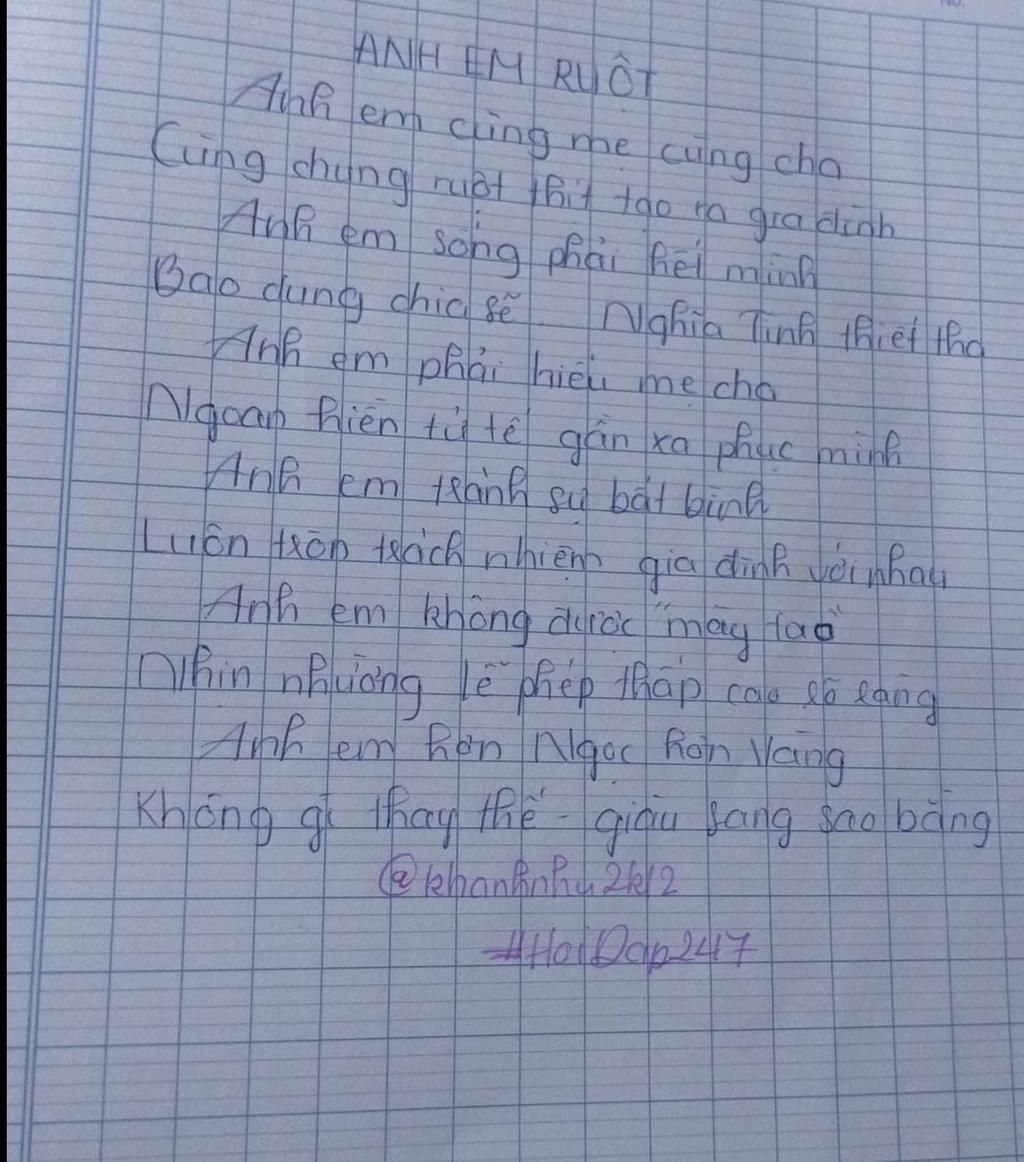 ANH EM RUỘT
Anh em cùng mẹ cùng cha
Cùng chung ruột thịt tạo ra gia đình
Anh em sống phải hết mình
Bao dung chia sẽ Nghĩa Tình thiết tha
Anh em phải hiếu mẹ cha
Ngoan hiền tử tế gần xa phục mình
Anh em tránh sự bất bình
Luôn tròn trách nhiệm gia đình với nhau
Anh em không được "mày tao"
Nhìn nhường lễ phép thấp cao rõ ràng
Anh em hơn Ngọc hơn Vàng
Không gì thay thế - giàu sang sao bằng
@khanhnhy2k12
#HoiDap247